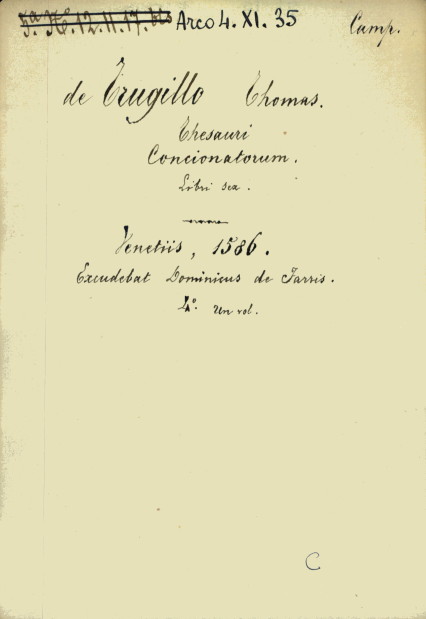 5ª H. 12. 11. 17. bis Arco 4. XI. 35 Camp.
de Trugillo Thomas.
Thesauri
Concionatorum.
Libri sex.
Venetiis, 1586.
Excudebat Dominicus de Farris.
4º. Un vol.
C